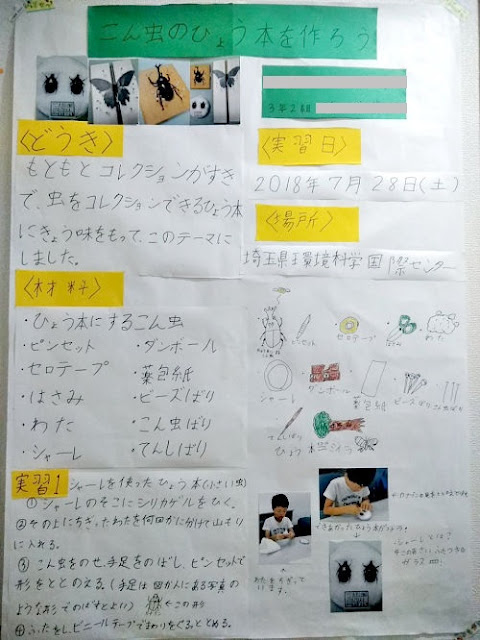 こん虫のひょう本を作ろう
3年2組
〈どうき〉
もともとコレクションがすき
で、虫をコレクションできるひょう本
にきょう味をもって、このテーマに
しました。
〈実習日〉
2018年7月28日(土)
〈場所〉
埼玉県環境科学国際センター
〈材料〉
・ひょう本にするこん虫
・ピンセット
・ダンボール
・セロテープ
・薬包紙
・はさみ
・ビーズばり
・わた
・こん虫ばり
・シャーレ
・てんしばり
ピンセット
セロテープ
はさみ
わた
シャーレ
ダンボール
薬包紙
ビーズばり
こん虫ばり
てんしばり
ひょう本
実習1 シャーレを使ったひょう本(小さい虫)
①シャーレのそこにシリカゲルをひく。
②その上にちぎったわたを何回かに分けて山もり
に入れる。
③こん虫をのせ、手足をのばし、ピンセットで
形をととのえる。(手足は図かんにある写真の
ような形でのばすとよい) ←この形
④ふたをし、ビニールテープでまわりをぐるっととめる。
わたをちぎって
います。
・シャーレとは
ガラス皿。